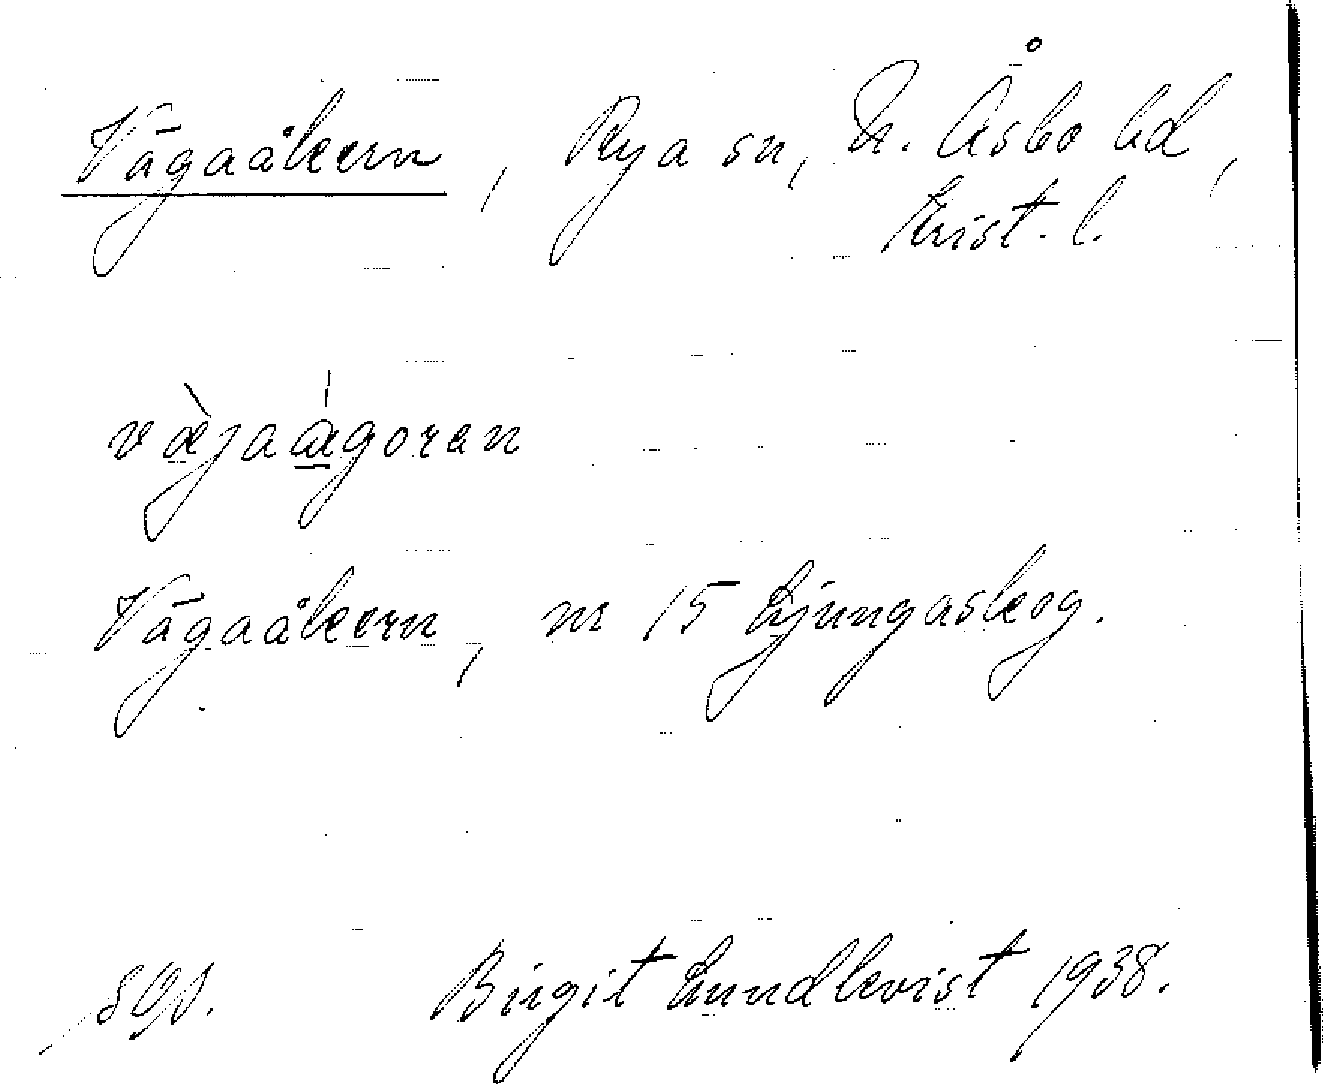 Vägaåkern, Rya sn, N. Åsbo hd,
Krist. l.
väjaågoren
Vägaåkern, nr 15 Ljungaskog.
Birgit Lundkvist 1938.